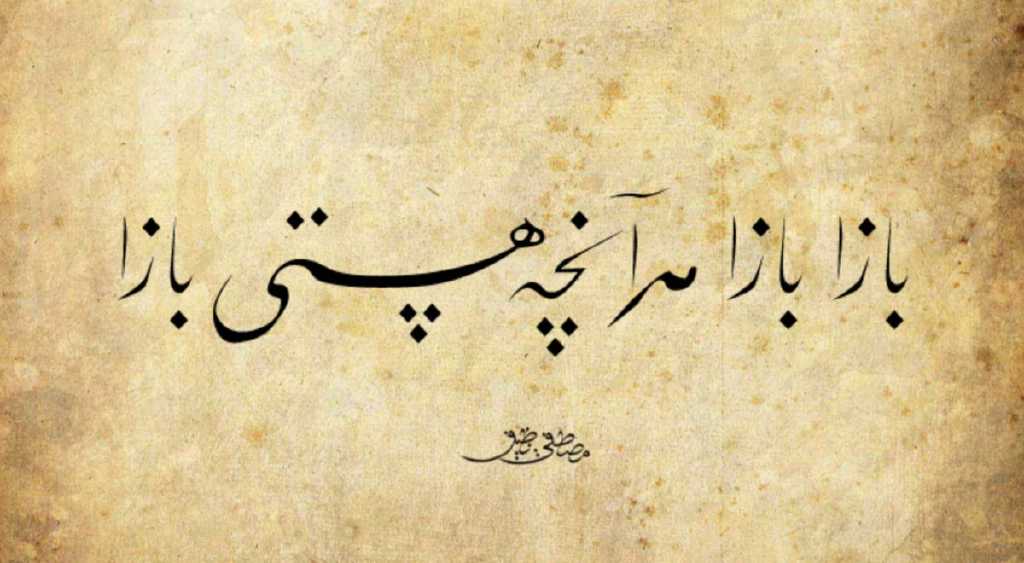 بازا بازا هر آنچه هستی بازا
مصطفی